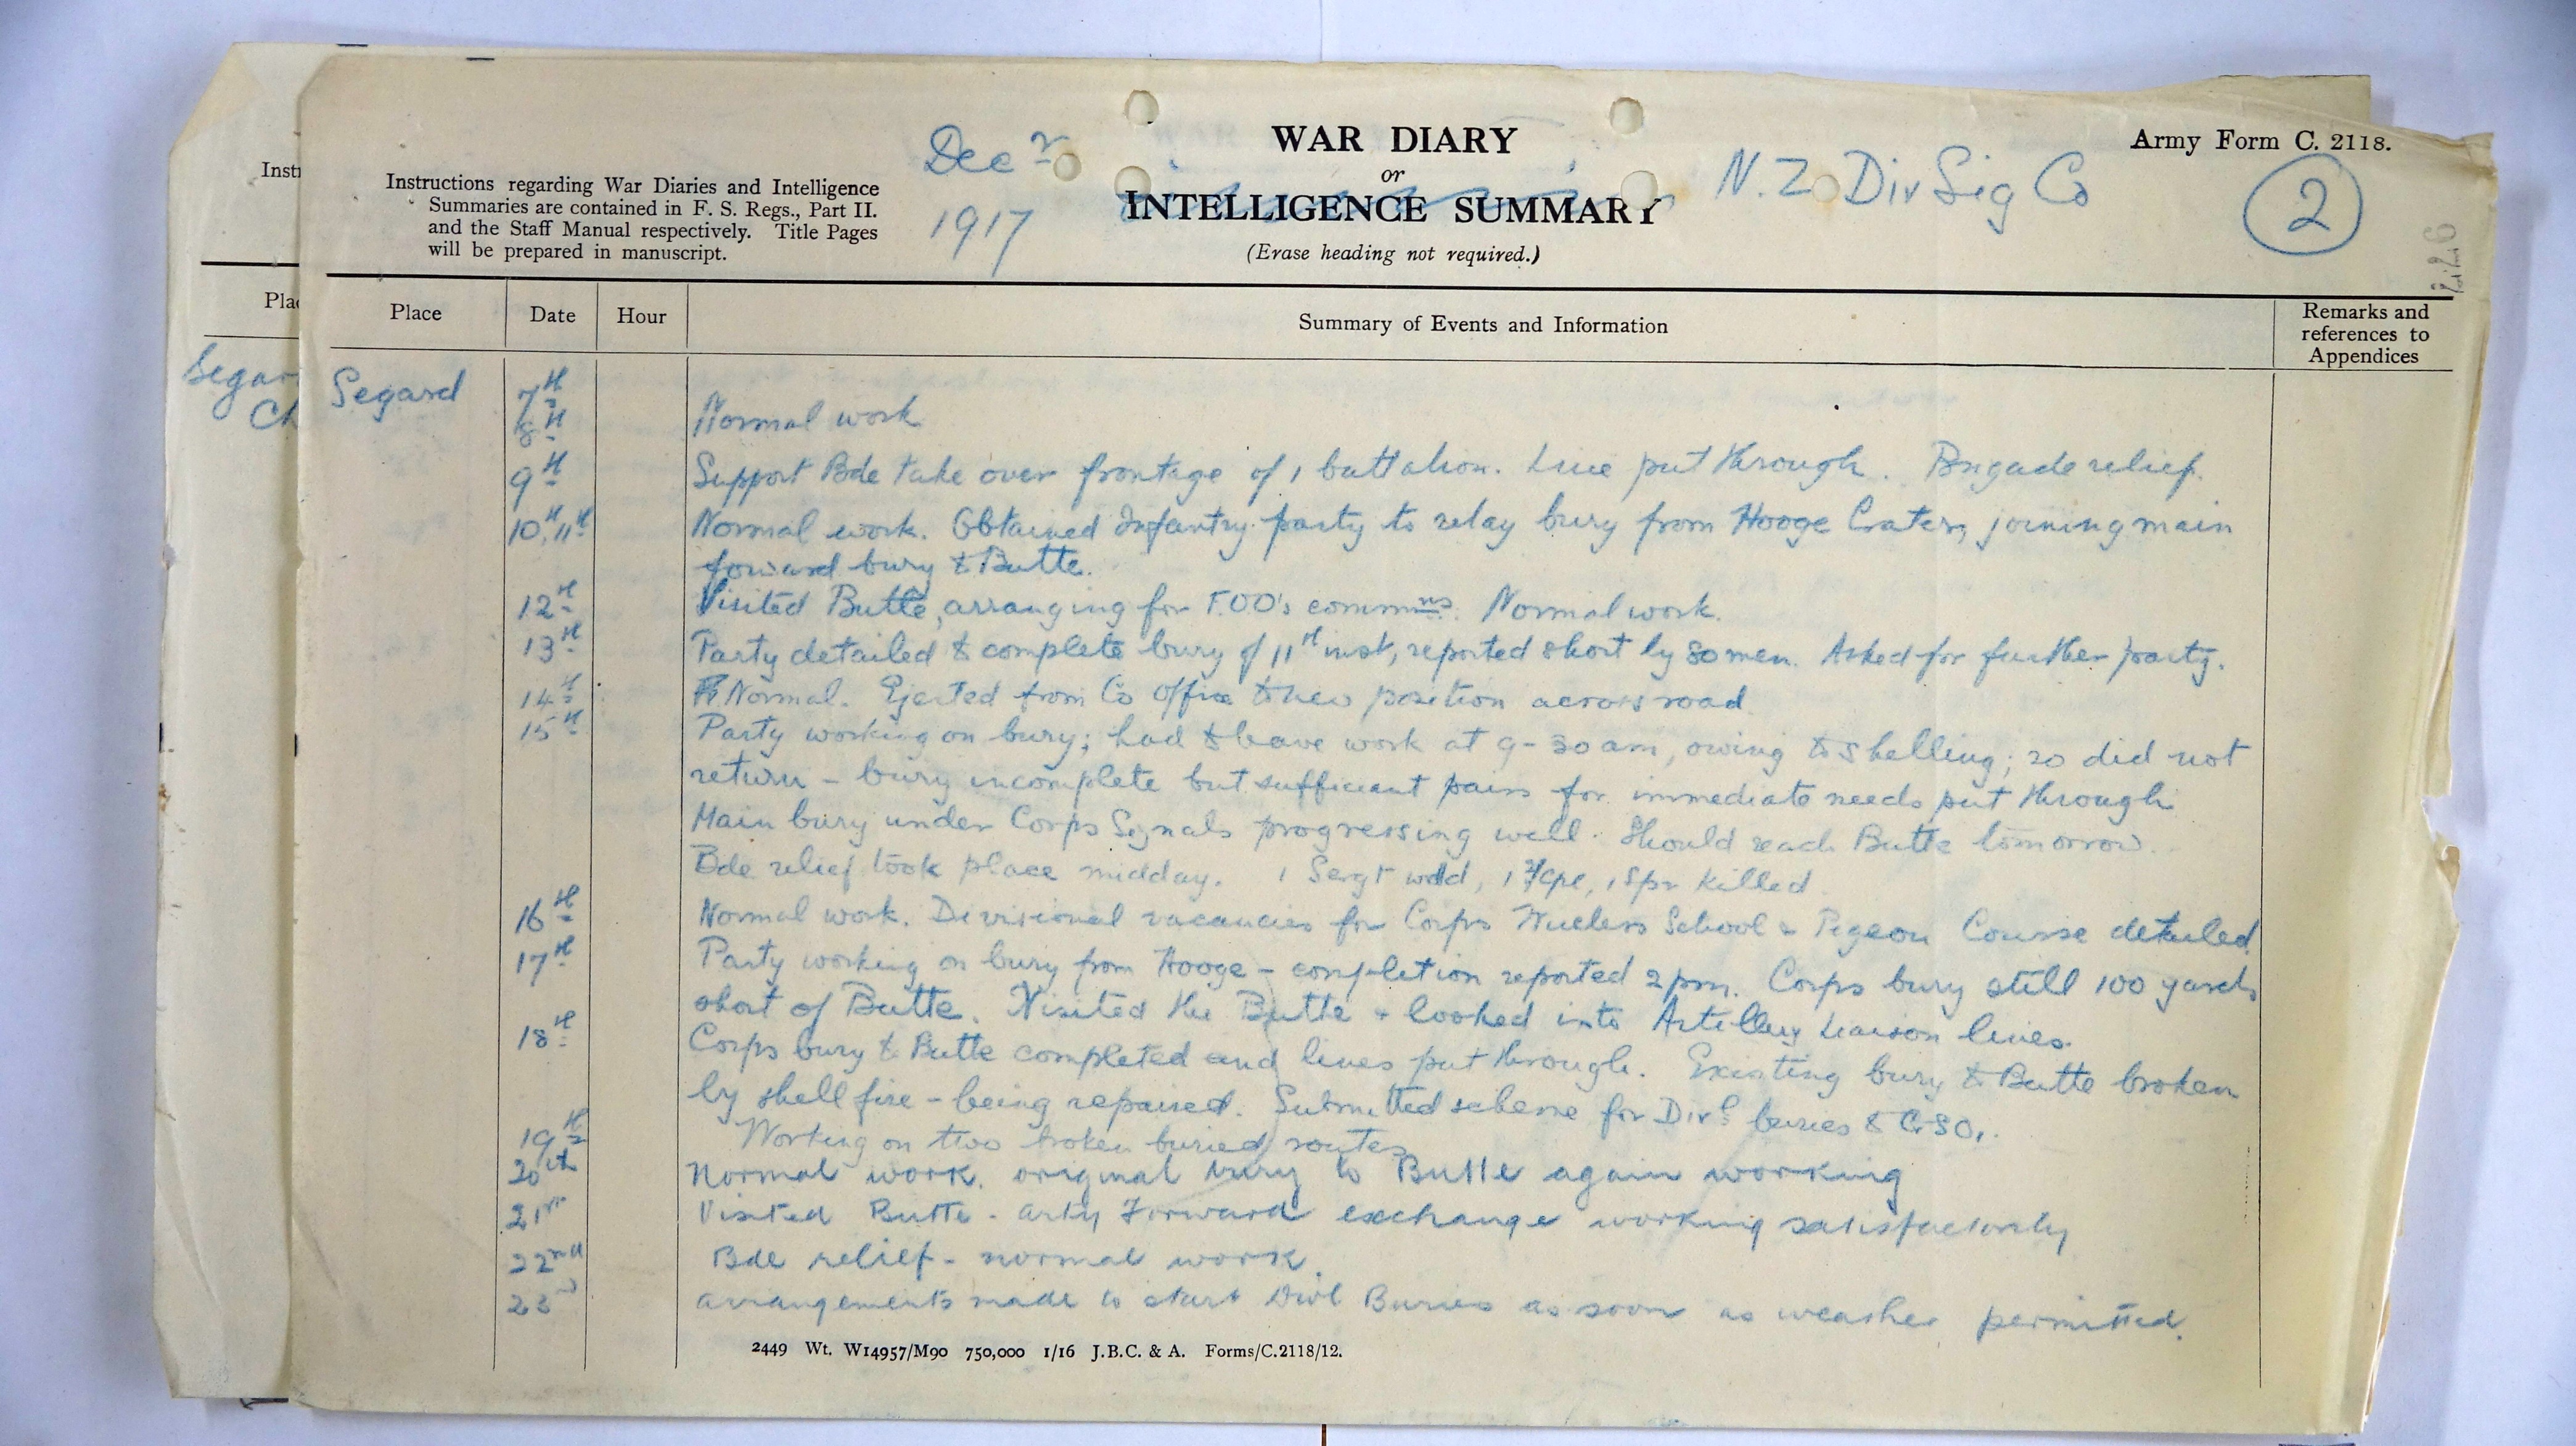 Dec r
1917
WAR DIARY
or
INTELLIGENCE SUMMARY
(Erase heading not required.)
N.Z Div Sig Co
Army Form C. 2118.
2
Instructions regarding War Diaries and Intelligence
Summaries are contained in F. S. Regs., Part II.
and the Staff Manual respectively. Title Pages
will be prepared in manuscript.
Inst
Pla
Segar
Ch
Place Date Hour Summary of Events and Information Remarks and
references to
Appendices
Segard 7th
8th Normal work
9th Support Bde take over frontage of 1 battalion. Line put through. Brigade relief.
10th, 11th Normal work. Obtained Infantry party to relay bury from Hooge Crater, joining main
forward bury to Butte.
12th Visited Butte, arranging for F.OO's commns. Normal work.
13th Party detailed to complete bury of 11th inst, reported short by 80 men. Asked for further party.
14th Normal. Ejected from Co Office to new position across road
15th Party working on bury; had to leave work at 9-30 am, owing to shelling; 20 did not
return - bury incomplete but sufficient pairs for immediate needs put through
Main bury under Corps Signals progressing well. Should reach Butte tomorrow.
Bde relief took place midday. 1 Sergt wdd, 1 2/Cpl, 1 Spr killed.
16th Normal work. Divisional vacancies for Corps Wireless School & Pigeon Course detailed
17th Party working on bury from Hooge - completion reported 2 pm. Corps bury still 100 yards
short of Butte. Visited the Butte & looked into Artillery Liaison lines.
18th Corps bury to Butte completed and lines put through. Existing bury to Butte broken
by shell fire - being repaired. Submitted scheme for Divl buries to GSO1.
19th Working on two broken buried routes
20th Normal work. original bury to Butte again working
21st Visited Butte - arty Forward exchange working satisfactorily
22nd Bde relief - normal work.
23rd arrangements made to start Divl Buries as soon as weather permitted.
2449 Wt. W14957/M90 750,000 1/16 J.B.C. & A. Forms/C.2118/12.